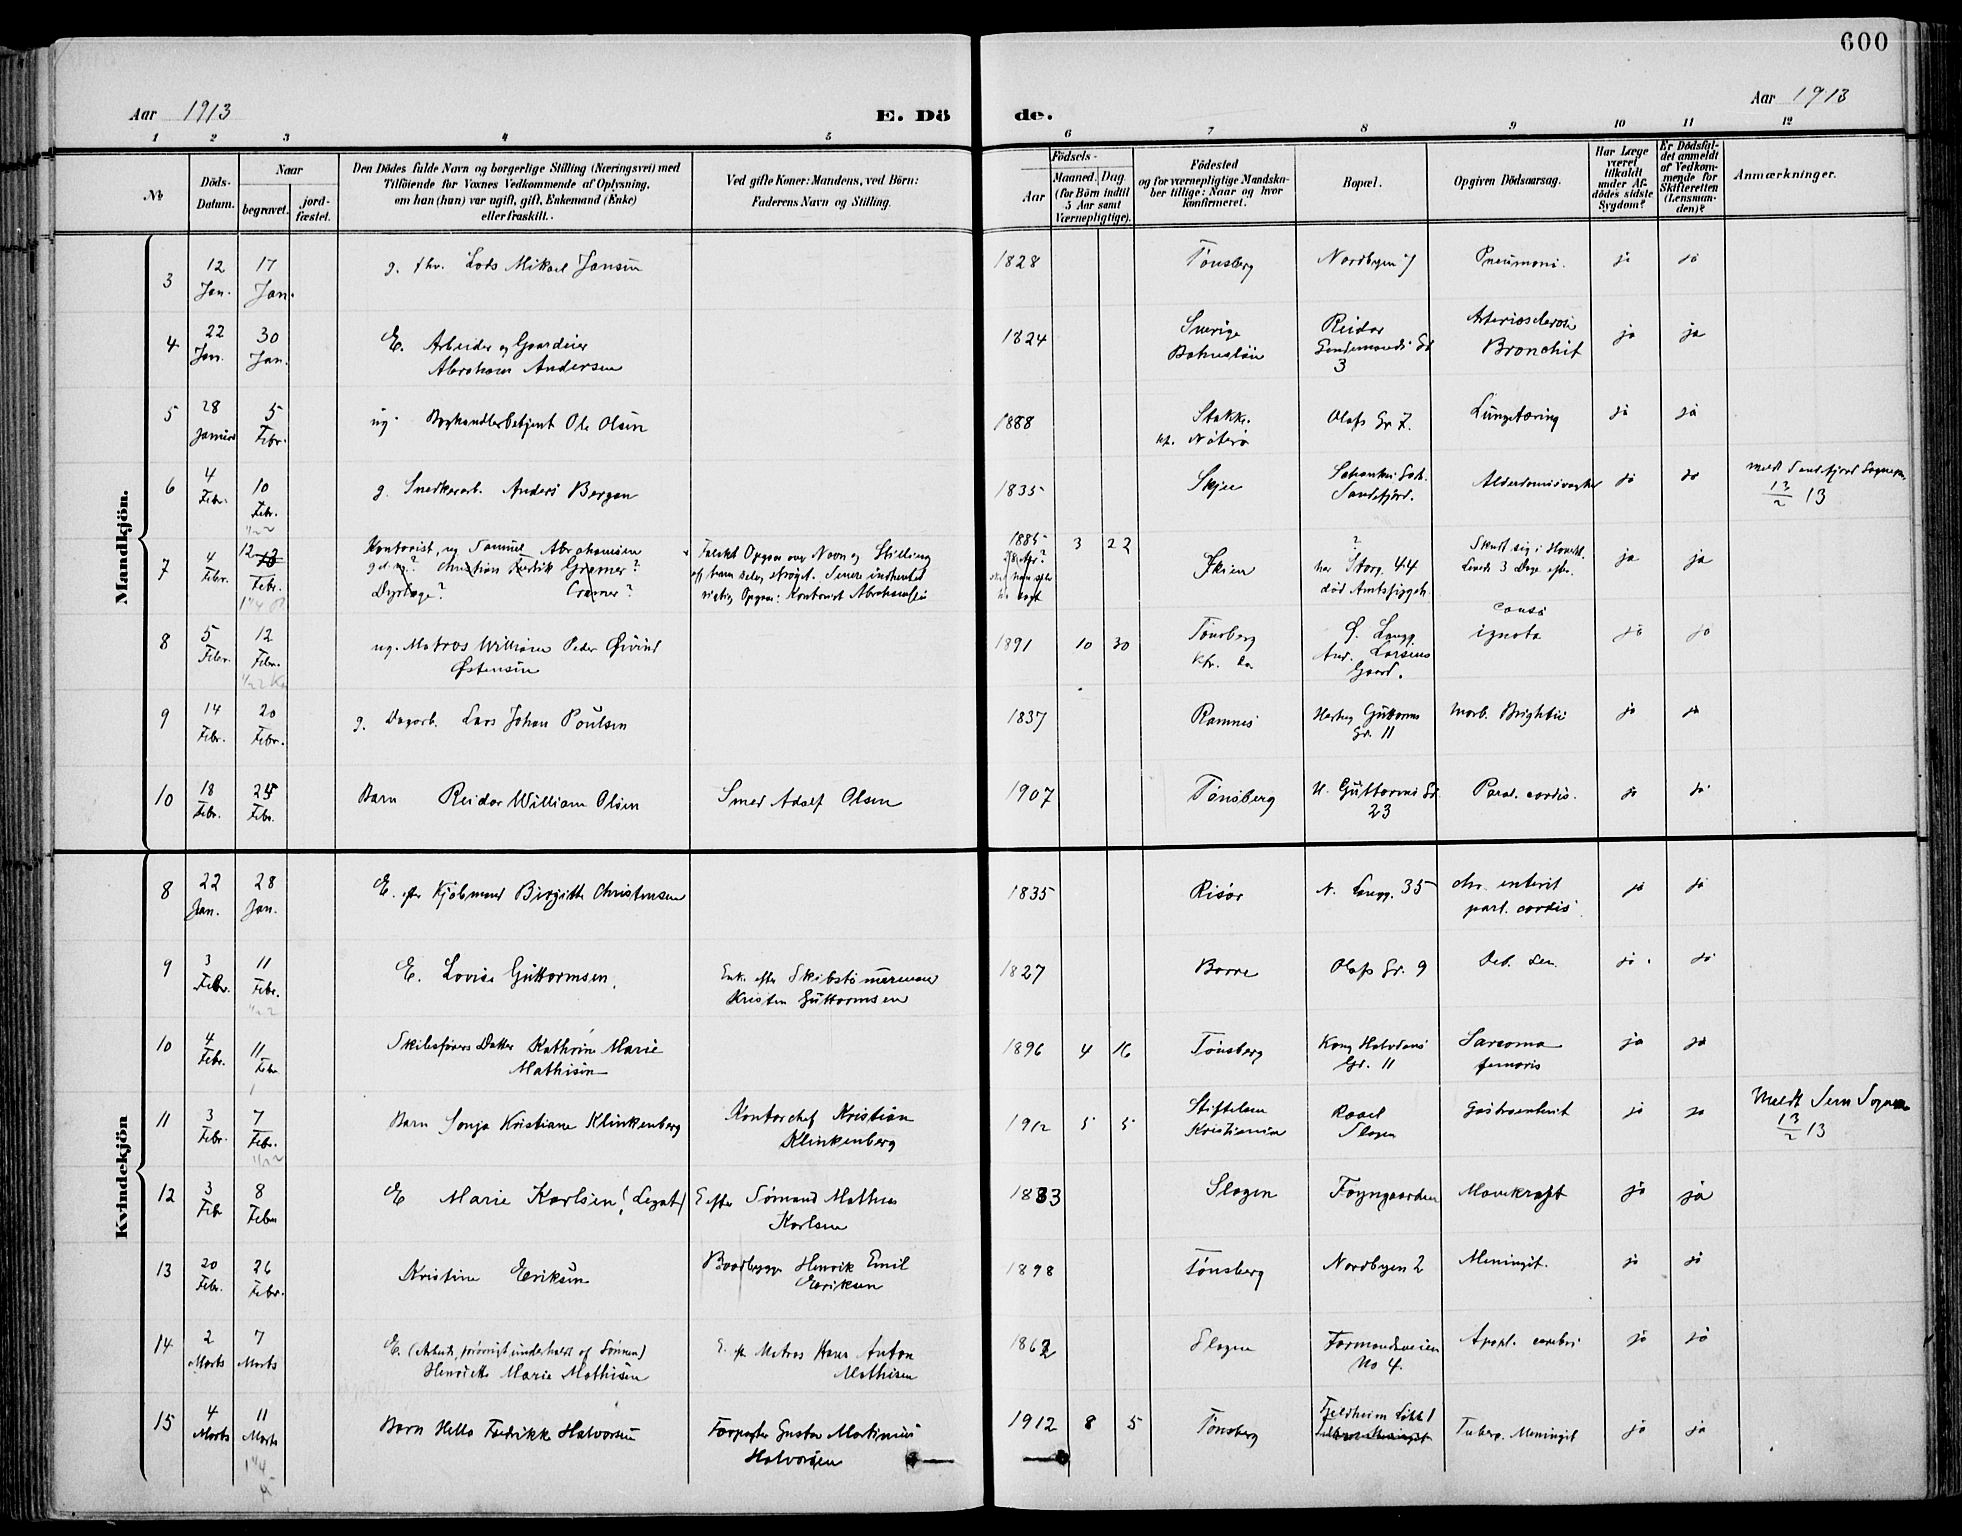 600
Aar 1913
E. Dö de.
Aar 1913
1 2 3 4 5 6 7 8 9 10 11 12
No
Döds-Datum.
Naar
begravet.
jord-fæstet.
Den Dödes fulde Navn og borgerlige Stilling (Næringsvei) med
Tilföiende for Voxnes Vedkommende af Oplysning,
om han (hun) var ugift, gift, Enkemand (Enke)
eller fraskilt.
Ved gifte Koner: Mandens, ved Börn:
Faderens Navn og Stilling.
Födsels-
Aar
Maaned. Dag
(for Börn indtil
5 Aar samt
Værnepligtige).
Födested
og for værnepligtige Mandska-
ber tillige: Naar og hvor
konfirmeret.
Bopæl.
Opgiven Dödsaarsag.
Har Læge
været
tilkaldt
under Af-
dödes sidste
Sygdom?
Er Dödsfal-
det anmeldt
af Vedkom-
mende for
Skifteretten
(Lensman-
den)?
Anmærkninger.
Mandkjön.
3 12 Jan. 17 Jan. g. fhv. Lods Mikael Jansen 1828 Tønsberg Nordbyen Pneumoni. ja ja
4 22 Jan. 30 Jan. E. Arbeider og Gaardeier
Abraham Andersen 1824 Sverige
Bohuslän Reidar
3 Arteriosclerose
Bronchit ja ja
5 28 Januar 5 Febr. ug. Ole Olsen 1888 Stokke.
Nøterø Olafs Gr 7. Lungetæring ja ja
6 4 Febr. 10 Febr. g. Snedkerarb. Anders Bergan 1835 Skjee
Sandefjord. ja ja meldt Sandefjord Sognepr.
13/2 13
7 4 Febr. 12 Febr. Kontorist, ug Samuel Abrahamsen
Christian Fredrik Gramer?
Cramer? Falskt Opgave over Navn og Stilling
af ham selv strøget. Senere indhentet
rigtig Opgave: Kontorist 1885 3 22 Skien Storg. 44
død Amtssygeh. Skudt sig i Hovedet.
Levede 3 Dage efter. ja ja
8 5 Febr. 12 Febr. ug. Matros William Peder Øivind
Østensen 1891 10 30 Tønsberg Ø. Langg.
And. Larsens
Gaard. causa
ignota ja ja
9 14 Febr. 20 Febr. g. Dagarb. Lars Johan Poulsen 1837 Ramnes Hertug Guttorms
Gr. 11 Morb. Brightii ja ja
10 18 Febr. 25 Febr. Barn Reidar William Olsen Smed Adolf Olsen 1907 Tønsberg H. Guttorms Gd.
23 Paral. cordis. ja ja
Kvindekjön
8 22 Jan. 28 Jan. E. efter Birgitte Christensen 1835 Risør N. Langg. 35 chr. enterit
parl. cordis ja ja
9 3 Febr. 11 Febr. E. Lovise Guttormsen. Enke efter Skibstømmermand
Kristen Guttormsen 1827 Borre Olafs Gr. 9 Deb. sen. ja ja
10 4 Febr. 11 Febr Skibsførers Datter Kathrine Marie
Mathisen 1896 4 16 Tønsberg Kong Halvdans
Gr. 11 Sarcoma
femoris ja ja
11 3 Febr. 7 Febr. Barn Sonja Kristiane Klinkenberg Kontorchef Kristian
Klinkenberg 1912 5 5 Stiftelsen
Kristiania Roael
Slagen Gastroenterit ja ja Meldt Sem Sognepr.
13/2 13
12 3 Feb 8 Febr E Marie Karlsen (Legat) E efter Sømand Mathias
Karlsen 1833 Slagen Foyngaarden Mavekræft ja ja
13 20 Febr. 26 Febr. Kristine Eriksen Baadbygger Henrik Emil
Eriksen 1898 Tønsberg Nordbyen 2 Meningit. ja ja
14 2 Marts 7 Marts E. (Arbeid., forøvrigt underholdt af Sønnen)
Henriette Marie Mathisen E. ef. Matros Hans Anton
Mathisen 1862 Slagen Formandsveien
No 4. Apopl. cerebri ja ja
15 4 Marts 11 Marts Barn Hella Fredrikke Halvorsen Forpagter Gustav Martinius
Halvorsen 1912 8 5 Tønsberg Fjeldheim
Tuberc. Meningit ja ja